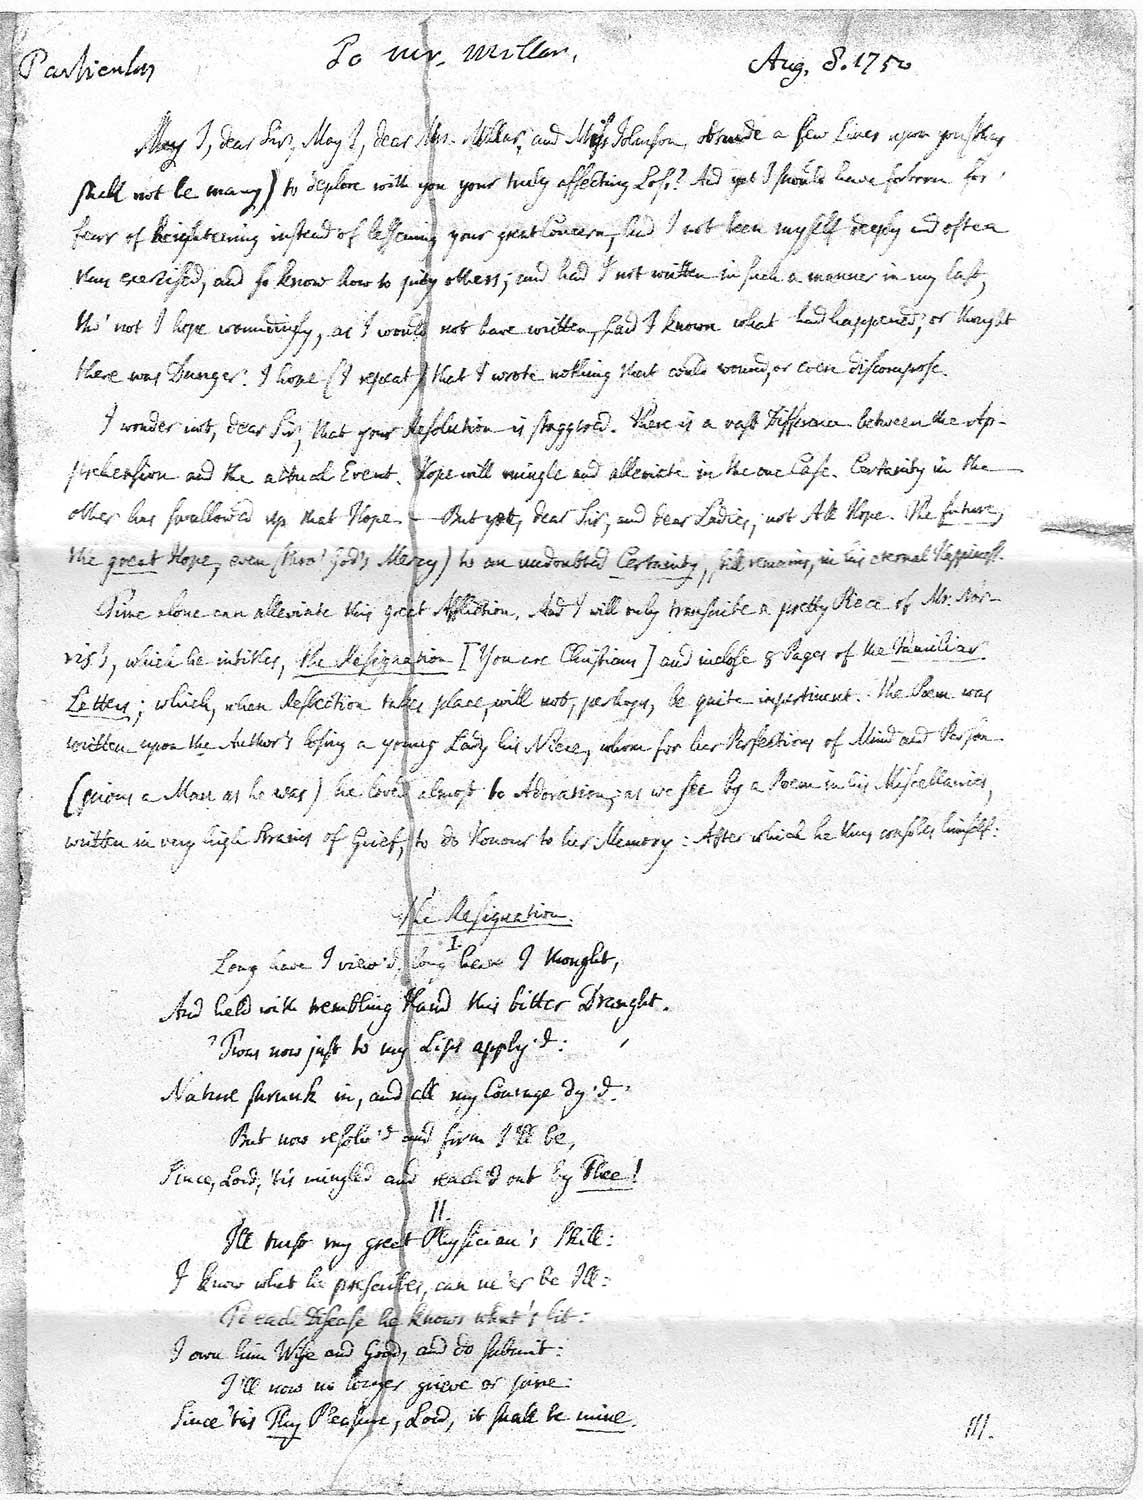 Particular
To Mr. Millar.
Aug. 8. 1750
May I, dear Sir, May I, dear Mrs. Millar, and Miss Johnson, obtrude a few Lines upon you (they
shall not be many) to deplore with you your truly affecting Loss? And yet I should have forborn for
fear of heightening instead of lessening your great Concern, had I not been myself deeply and often
thus exercised, and so know how to pity others; and had I not written in such a manner in my last,
tho' not I hope woundingly, as I would not have written, had I known what had happened, or thought
there was Danger. I hope (I repeat) that I wrote nothing that could wound, or even discompose.
I wonder not, dear Sir, that your Resolution is staggered. There is a vast Difference between the Ap-
prehension and the actual Event. Hope will mingle and alleviate in the one Case. Certainty in the
other has swallowed up that Hope. — But yet, dear Sir, and dear Ladies, not All Hope. The future,
the great Hope, even (thro' God's Mercy) to an undoubted Certainty, still remains, in his eternal Happiness.
Time alone can alleviate this great Affliction. And I will only transcribe a pretty Piece of Mr. Nor-
ris's, which he intitles, The Resignation [You are Christians] and inclose 8 Pages of the Familiar
Letters; which, when Reflection takes place, will not, perhaps, be quite impertinent. The Poem was
written upon the Author's losing a young Lady his Niece, whom for her Perfections of Mind and Person
(pious a Man as he was) he loved almost to Adoration, as we see by a Poem in his Miscellanies,
written in very high Strains of Grief, to do Honour to her Memory: After which he thus consoles himself:
The Resignation.
I.
Long have I view'd, long have I thought,
And held with trembling Hand this bitter Draught.
'Twas now just to my Lips apply'd:
Nature shrunk in, and all my Courage dy'd.
But now resolv'd and firm I'll be,
Since, Lord, 'tis mingled and reach'd out by Thee!
II.
I'll trust my great Physician's Skill:
I know what he prescribes, can ne'er be Ill:
To each Disease he knows what's fit:
I own him Wise and Good, and do submit:
I'll now no longer grieve or pine:
Since 'tis Thy Pleasure, Lord, it shall be mine.
III.